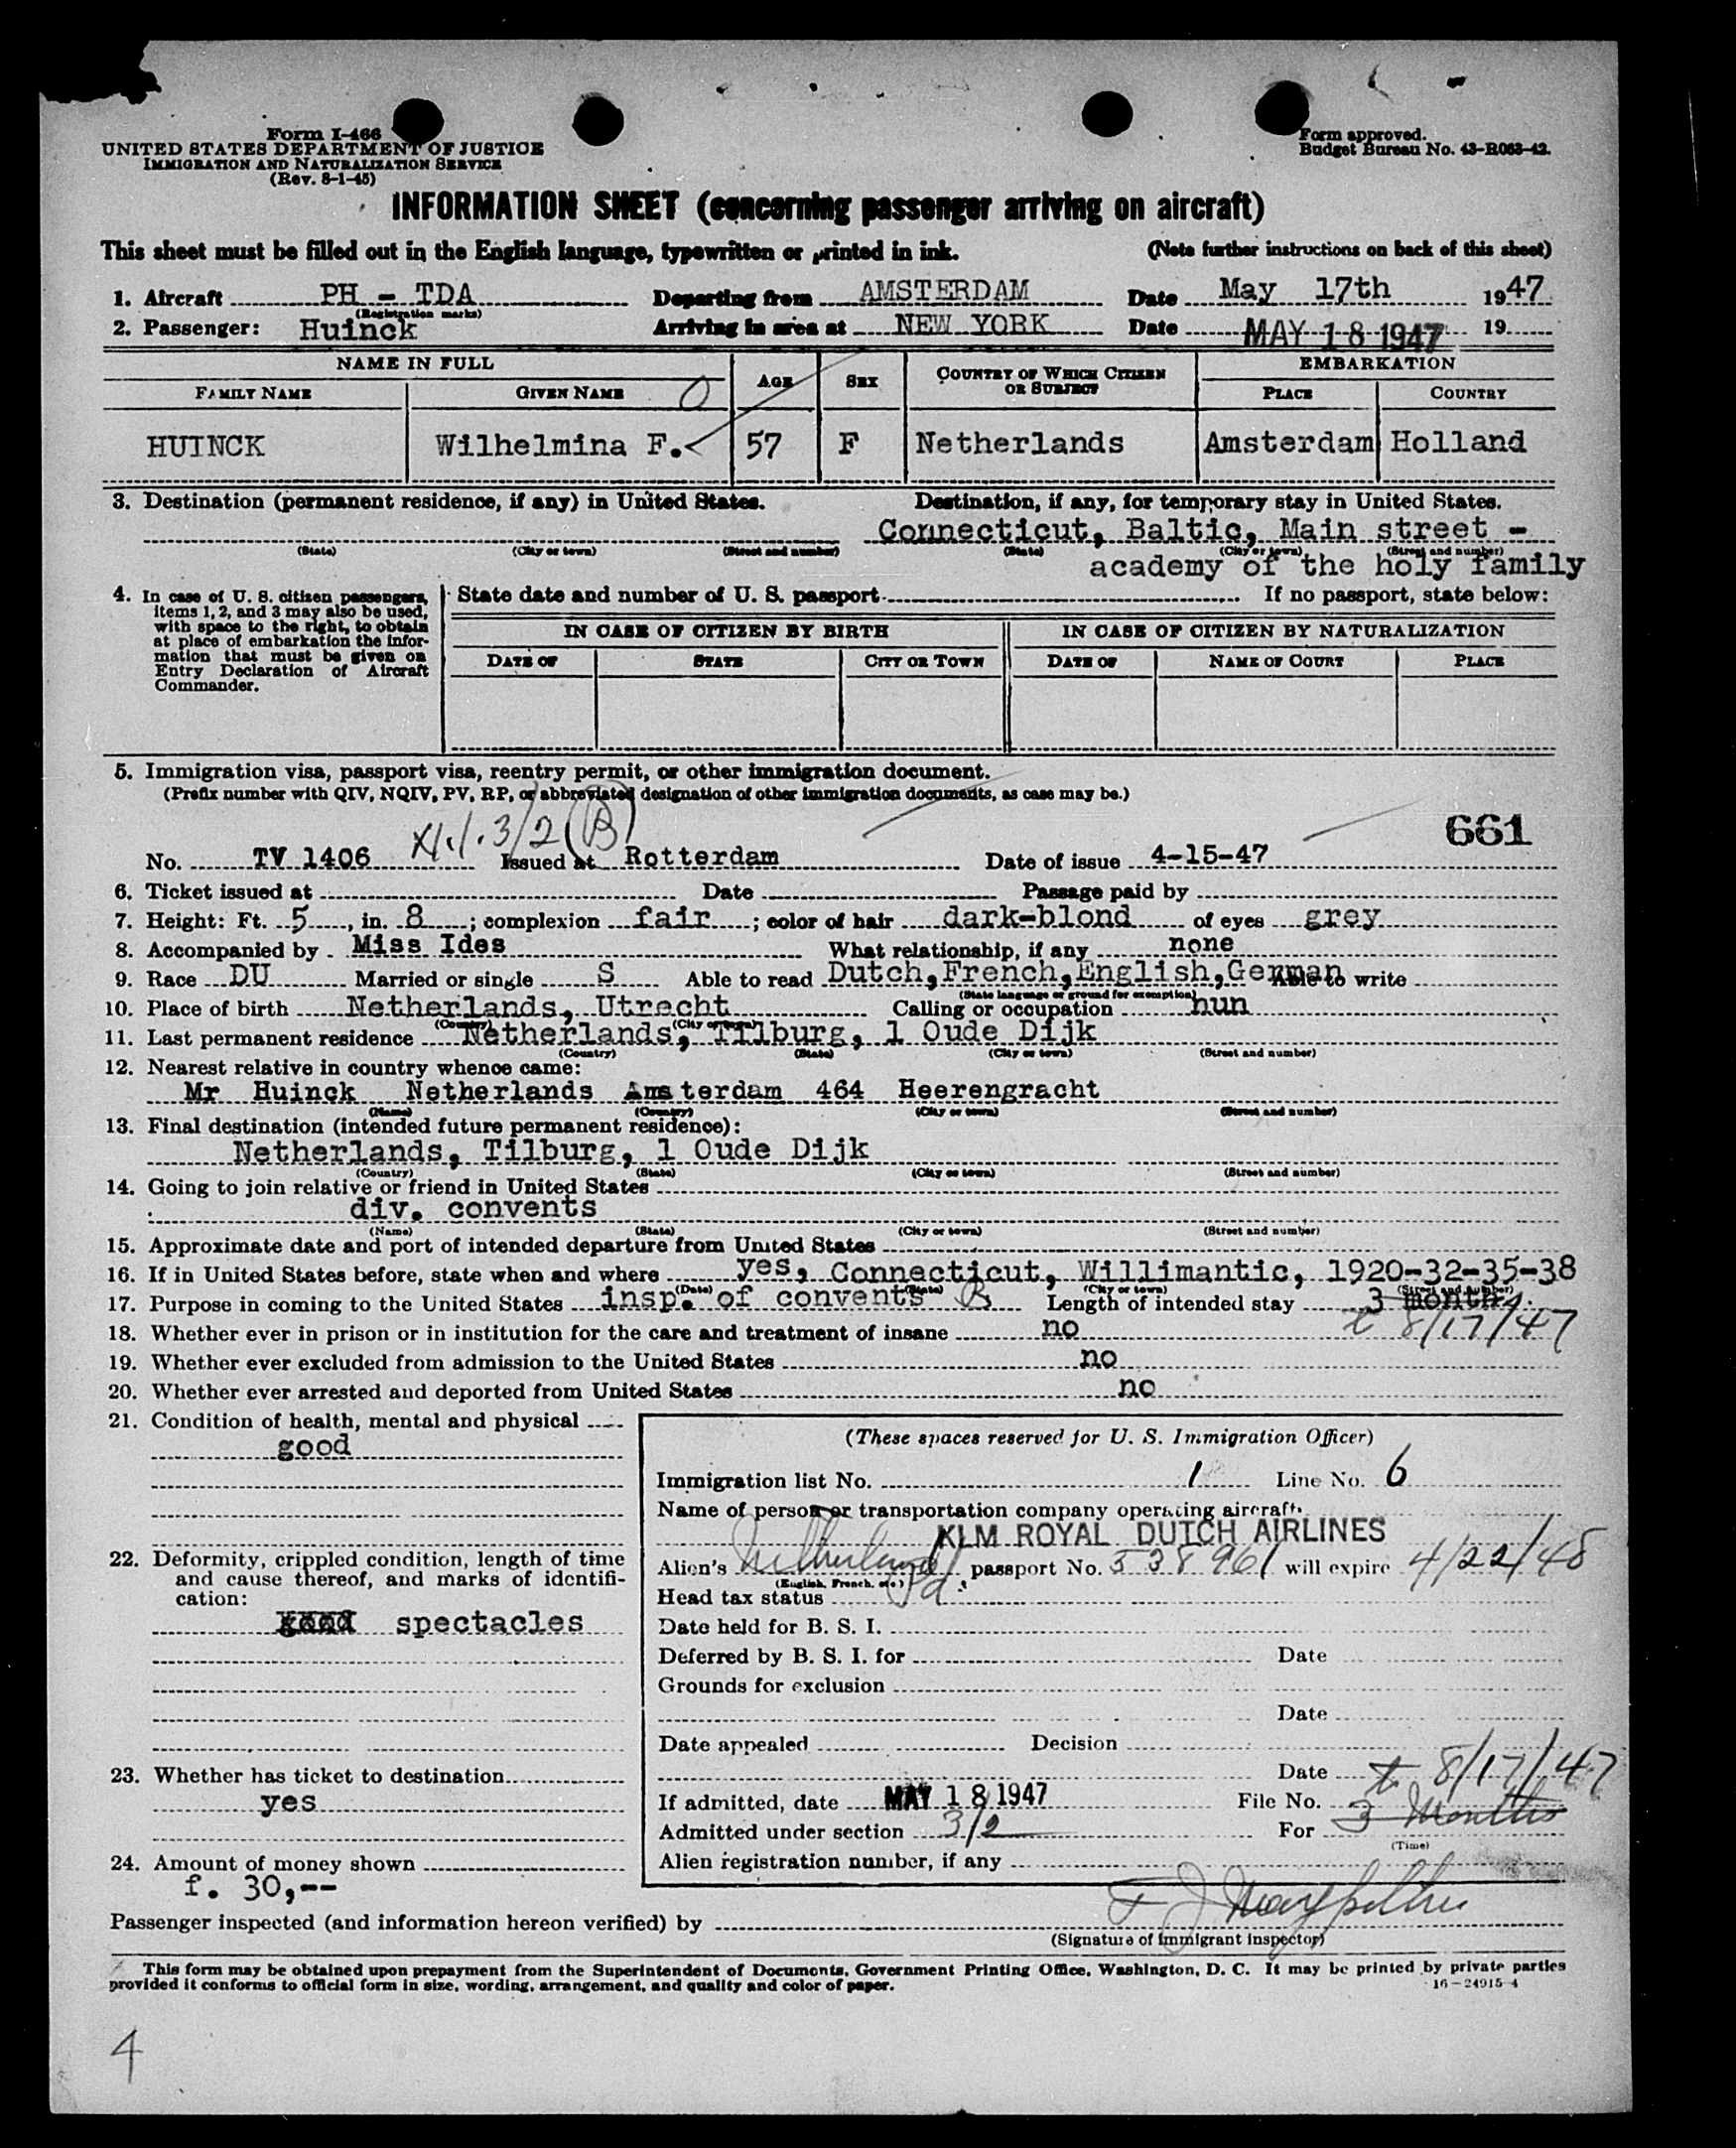 Form I-466
UNITED STATES DEPARTMENT OF JUSTICE
IMMIGRATION AND NATURALIZATION SERVICE
(Rev. 8-1-45)
Form approved.
Budget Bureau No. 43-R063-42.
INFORMATION SHEET (concerning passenger arriving on aircraft)
This sheet must be filled out in the English language, typewritten or printed in ink. (Note further instructions on back of this sheet)
1. Aircraft PH - TDA Departing from AMSTERDAM Date May 17th 1947
(Registration marks)
2. Passenger: Huinck Arriving in area at NEW YORK Date MAY 18 1947 19
NAME IN FULL AGE SEX COUNTRY OF WHICH CITIZEN OR SUBJECT EMBARKATION
FAMILY NAME GIVEN NAME PLACE COUNTRY
HUINCK Wilhelmina F. 57 F Netherlands Amsterdam Holland
3. Destination (permanent residence, if any) in United States. Destination, if any, for temporary stay in United States.
Connecticut, Baltic, Main street -
(State) (City or town) (Street and number) (State) (City or town) (Street and number)
academy of the holy family
4. In case of U. S. citizen passengers, items 1, 2, and 3 may also be used, with space to the right, to obtain at place of embarkation the information that must be given on Entry Declaration of Aircraft Commander.
State date and number of U. S. passport If no passport, state below:
IN CASE OF CITIZEN BY BIRTH IN CASE OF CITIZEN BY NATURALIZATION
DATE OF STATE CITY OR TOWN DATE OF NAME OF COURT PLACE
5. Immigration visa, passport visa, reentry permit, or other immigration document.
(Prefix number with QIV, NQIV, PV, RP, or abbreviated designation of other immigration documents, as case may be.)
3/2 (B) 661
No. TV 1406 Issued at Rotterdam Date of issue 4-15-47
6. Ticket issued at Date Passage paid by
7. Height: Ft. 5, in. 8; complexion fair; color of hair dark-blond of eyes grey
8. Accompanied by Miss Ides What relationship, if any none
9. Race DU Married or single S Able to read Dutch, French, English, German Able to write
(State language or ground for exemption)
10. Place of birth Netherlands, Utrecht Calling or occupation nun
(Country) (City or town)
11. Last permanent residence Netherlands, Tilburg, 1 Oude Dijk
(Country) (State) (City or town) (Street and number)
12. Nearest relative in country whence came:
Mr Huinck Netherlands Amsterdam 464 Heerengracht
(Name) (Country) (City or town) (Street and number)
13. Final destination (intended future permanent residence):
Netherlands, Tilburg, 1 Oude Dijk
(Country) (State) (City or town) (Street and number)
14. Going to join relative or friend in United States
div. convents
(Name) (State) (City or town) (Street and number)
15. Approximate date and port of intended departure from United States
16. If in United States before, state when and where yes, Connecticut, Willimantic, 1920-32-35-38
(Date) (State) (City or town) (Street and number)
17. Purpose in coming to the United States insp. of convents B Length of intended stay 3 months
18. Whether ever in prison or in institution for the care and treatment of insane no t 8/17/47
19. Whether ever excluded from admission to the United States no
20. Whether ever arrested and deported from United States no
21. Condition of health, mental and physical
good
22. Deformity, crippled condition, length of time and cause thereof, and marks of identification:
good spectacles
23. Whether has ticket to destination
yes
24. Amount of money shown
f. 30,--
(These spaces reserved for U. S. Immigration Officer)
Immigration list No. 1 Line No. 6
Name of person or transportation company operating aircraft
KLM ROYAL DUTCH AIRLINES
Alien's Netherland passport No. 538961 will expire 4/22/48
(English, French, etc.)
Head tax status
Date held for B. S. I.
Deferred by B. S. I. for Date
Grounds for exclusion
Date
Date appealed Decision
Date t 8/17/47
If admitted, date MAY 18 1947 File No.
Admitted under section 3/2 For 3 Months
(Time)
Alien registration number, if any
Passenger inspected (and information hereon verified) by
(Signature of Immigrant Inspector)
This form may be obtained upon prepayment from the Superintendent of Documents, Government Printing Office, Washington, D. C. It may be printed by private parties
provided it conforms to official form in size, wording, arrangement, and quality and color of paper. 16-24915-4
4